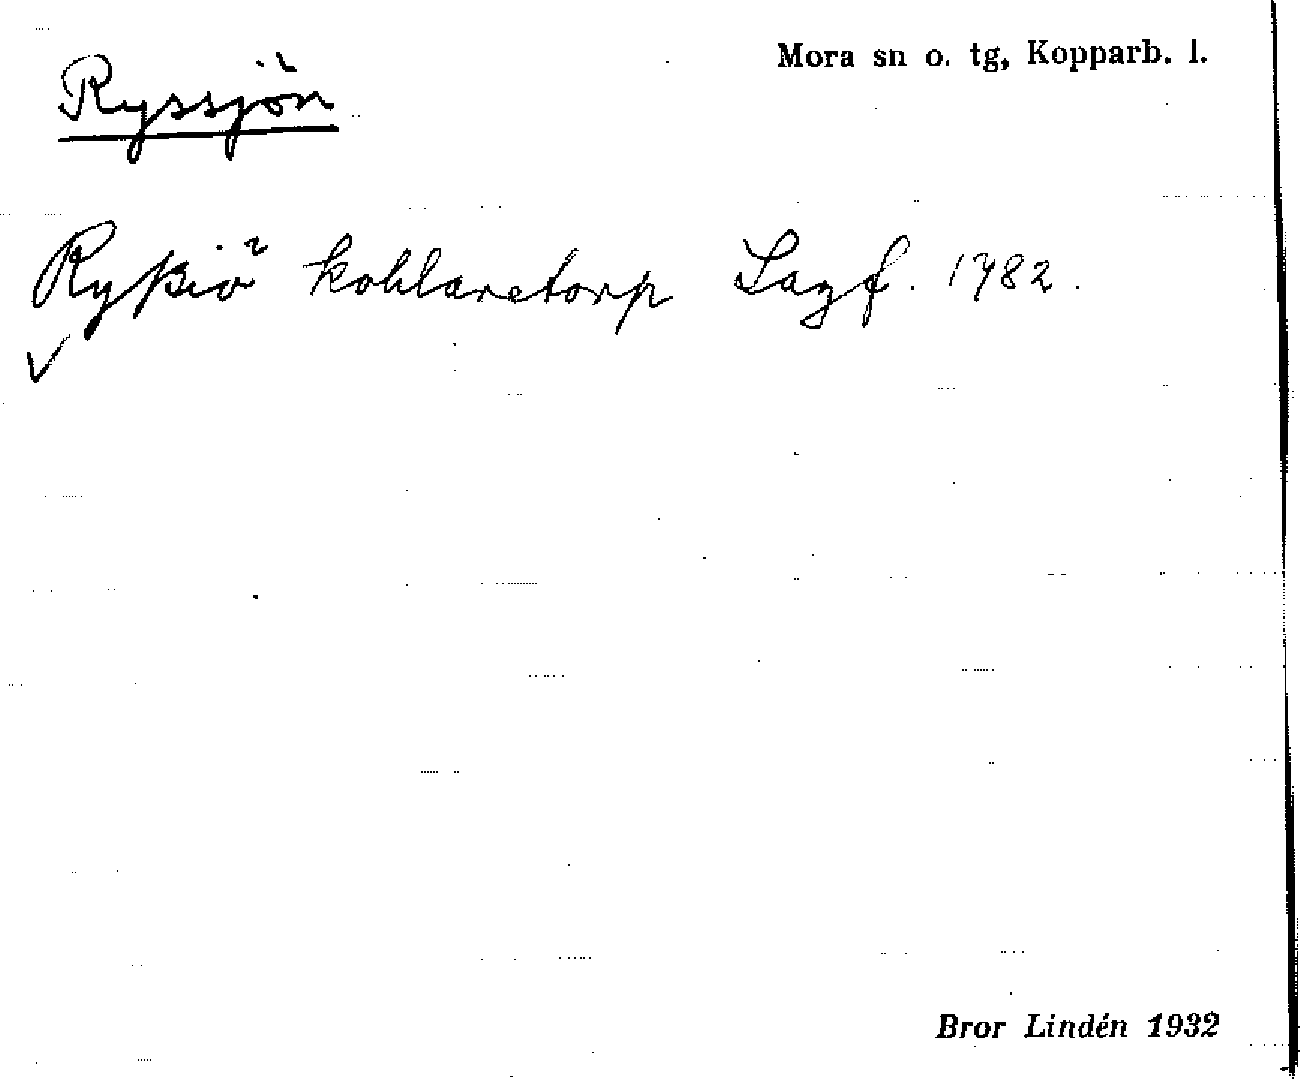 Mora sn o. tg, Kopparb. l.
Ryssjön
Ryßiö kohlaretorp Lagf. 1782.
Bror Lindén 1932